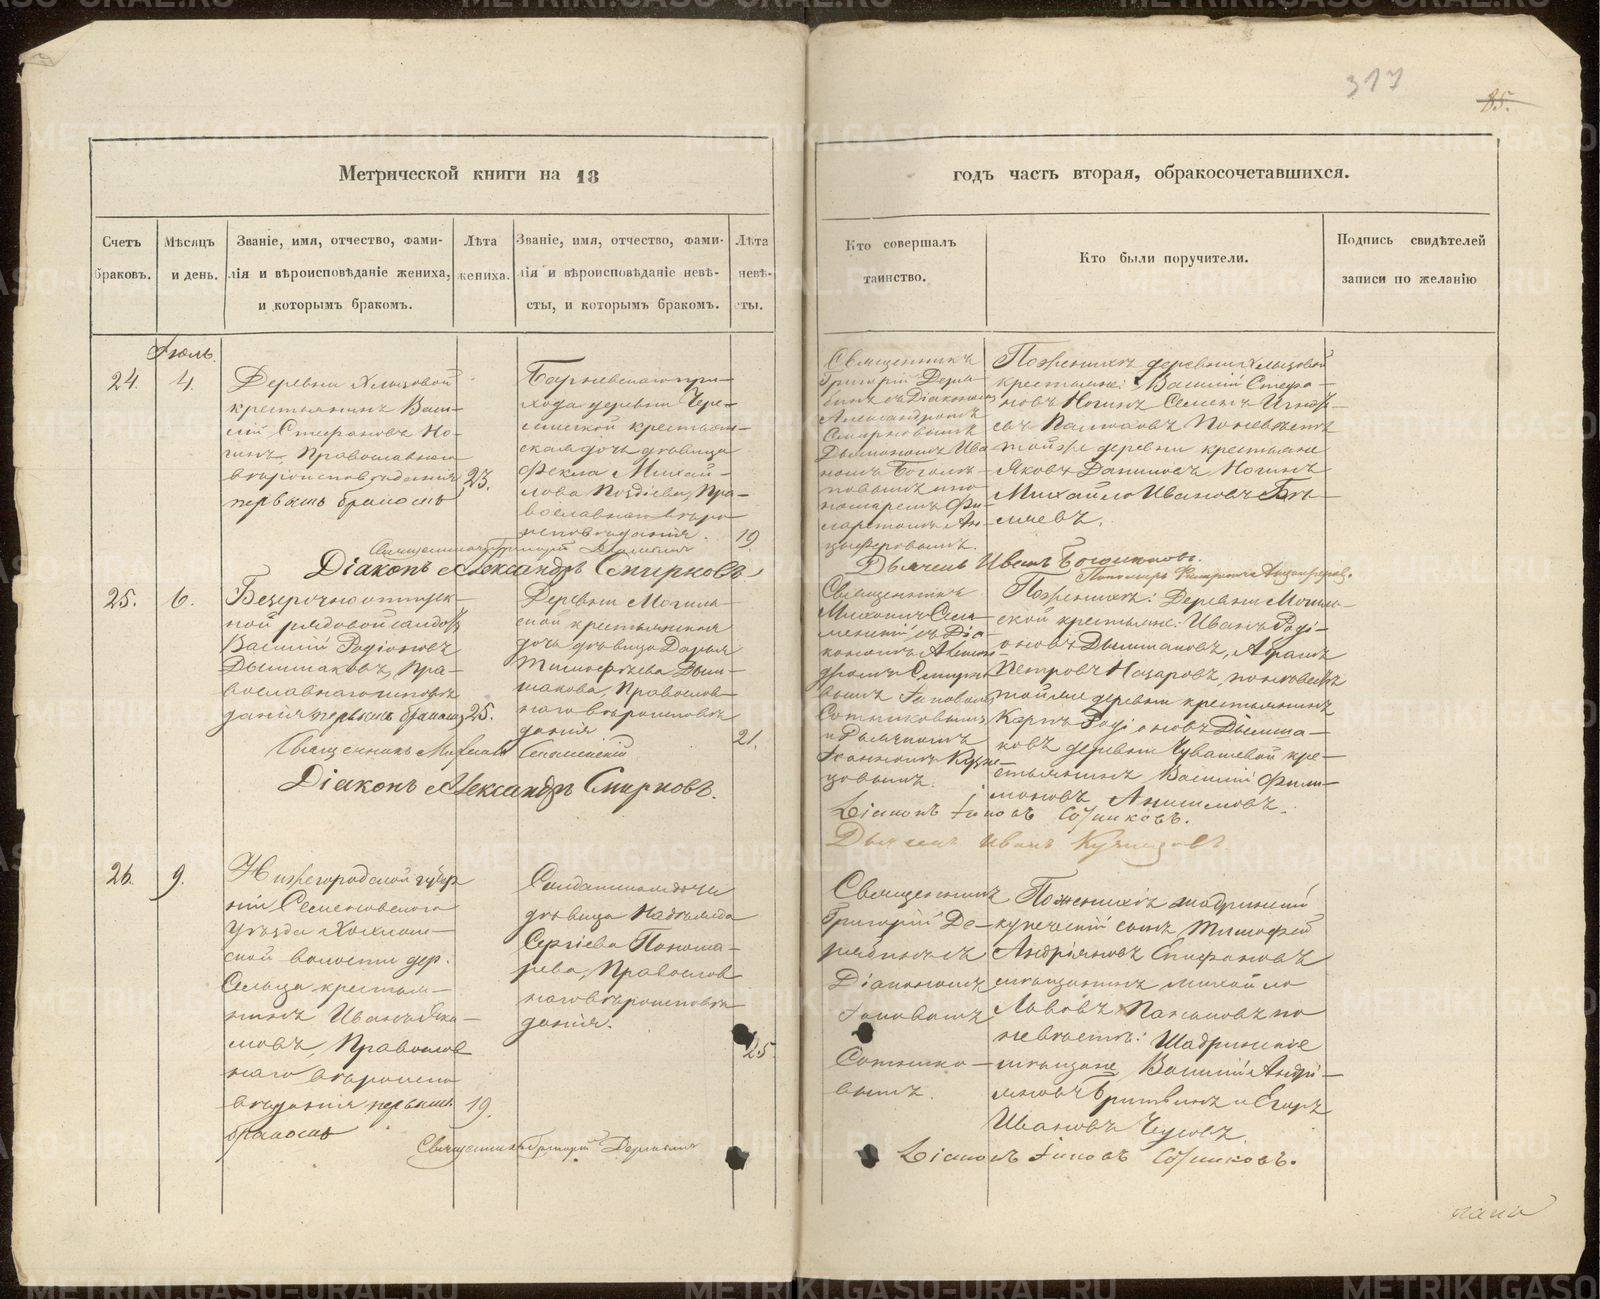 317
85.
Метрической книги на 18
годъ часть вторая, обракосочетавшихся.
Счетъ браковъ.
Мѣсяцъ и день.
Званіе, имя, отчество, фами-
лія и вѣроисповѣданіе жениха,
и которымъ бракомъ.
Лѣта жениха.
Званіе, имя, отчество, фами-
лія и вѣроисповѣданіе невѣ-
сты, и которымъ бракомъ.
Лѣта невѣ-
сты.
Кто совершалъ
таинство.
Кто были поручители.
Подпись свидѣтелей
записи по желанію
Іюль.
24.
4.
Деревни Хлызовой
крестьянинъ Васи-
лій Стефановъ Но-
гинъ, Православнаго
вѣроисповѣданія
первымъ бракомъ
23.
прихода деревни Чере-
мисской крестьян-
ская дочь дѣвица
Фекла Михай-
лова Поздѣева, Пра-
вославнаго вѣро
исповѣданія.
19
Священникъ
Григорій Деря-
бинъ съ Діакономъ
Александромъ
Смирновымъ
Дьячкомъ Ива
номъ
и по-
номаремъ Фи-
ларетомъ Ан-
цыферовымъ.
По женихѣ деревни Хлызовой
крестьяне: Василій Стефа-
новъ Ногинъ Семенъ Игнать-
евъ по невѣстѣ
той же деревни крестьяне
Яковъ Даниловъ Ногинъ
Михайло Ивановъ Бѣ-
ляевъ.
Священникъ Григорій Дерябинъ
Діаконъ Александръ Смирновъ
Дьячекъ Иванъ
Пономарь Филаретъ Анцыферовъ.
25.
6.
Безсрочноотпуск-
ной рядовой солдатъ
Василій Родіоновъ
Дьышаковъ, Пра-
вославнаго исповѣ
данія первымъ бракомъ
25.
Деревни Могиль-
ской крестьянская
дочь дѣвица Дарья
Тимофѣева
Православ
наго вѣроисповѣ
данія
21.
Священникъ
Михаилъ
съ Діа-
кономъ Алексан-
дромъ Смирно
вымъ Іаковомъ
Сотниковымъ
и Дьячкомъ
Іоанномъ Кузне-
цовымъ.
По женихѣ: Деревни Могиль-
ской крестьяне: Иванъ Роді-
оновъ Абрамъ
Петровъ Назаровъ, по невѣстѣ
той же деревни крестьянинъ
Карпъ Родіоновъ
ковъ деревни Чувашевой кре-
стьянинъ Василій Фили-
моновъ Анисимовъ.
Священникъ Михаилъ
Діаконъ Александръ Смирновъ.
Діаконъ Іаковъ Сотниковъ.
Дьячекъ Иванъ Кузнецовъ
26.
9.
Нижегородской губер
ніи Семеновского
уѣзда Хохлом-
ской волости дер.
Сельца крестья-
нинъ Иванъ Яки-
мовъ, Православ
наго вѣроиспо
вѣданія первымъ
бракомъ
19.
Солдатская дочь
дѣвица Надѣжда
Сергіева Понома-
рева, Православ
наго вѣроисповѣ
данія.
25.
Священникъ
Григорій Де-
рябинъ съ
Діакономъ
Іаковомъ
Сотнико-
вымъ.
По женихѣ шадринскій
купеческій сынъ Тимофей
Андріяновъ Епифановъ
мѣщанинъ Михайло
Львовъ по
невѣстѣ: Шадринскіе
мѣщане, Василій Андрі-
яновъ и Егоръ
Ивановъ
Священникъ Григорій Дерябинъ
Діаконъ Іаковъ Сотниковъ.
METRIKI.GASO-URAL.RU